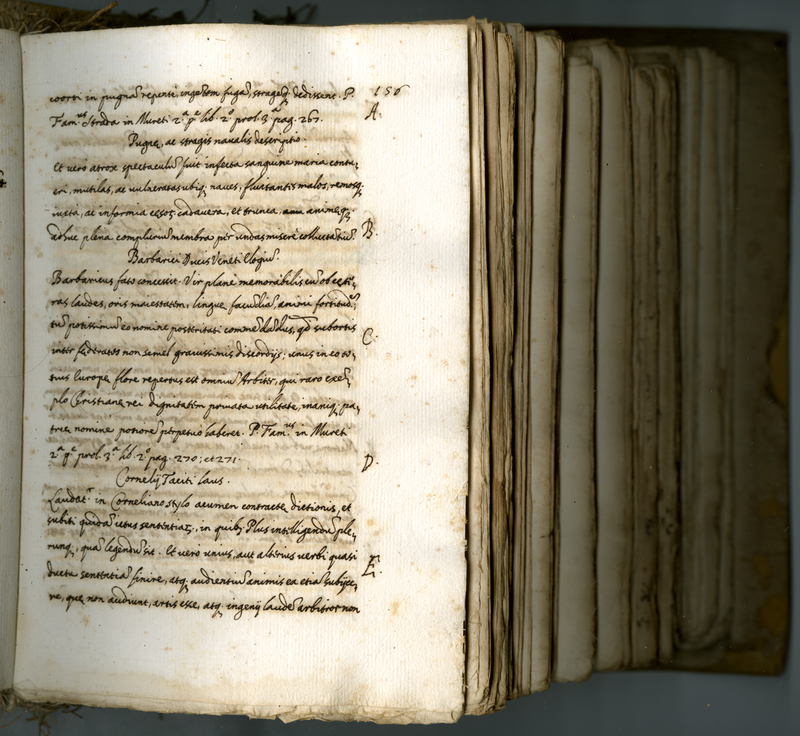 156
coorti in pugnã repenti, ingẽtem fugã, stragẽq; dedissent. P.
A.
Fam.us Strada in Mureti 2.a p.e lib. 2.o prol. 3.a pag. 267.
Pugnę, ac stragis naualis descriptio.
Et verò atrox spectaculũ fuit infecta sanguine maria conta,
eri, mutilas, ac vulneratas ubiq; naues, fluitantis malos, remosq;
iuxta, ac informia cęsor; cadauera, et trunca, animęq;
adhuc plena complurium membra per undas miserè colluctatiũ.
B.
Barbarici Ducis Veneti Elogiũ.
Barbaricus fato concessit. Vir planè memorabilis cũ ob cęte,
ras laudes, oris maiestatem, linguę facũdiã, animi fortitudẽ,
tũ potissimũ eo nomine posteritati commẽdãdus, qd subortis
C.
inter fęderatos non semel grauissimis discordijs, unus in eo to,
tius Europę flore repertus est omniũ Arbiter, qui raro exẽ,
plo Christianę rei dignitatem priuata utilitate, inaniq; pa,
trię nomine potiorẽ perpetuo haberet. P. Fam.us in Mureti
2.a p.e prol. 3.a lib. 2.o pag. 270; et 271.
D.
Cornelij Taciti Laus.
Laudat.r in Corneliano stylo acumen contractę dictionis, et
subiti quidã ictus sententiar;, in quib; Plus intelligendũ ple,
runq;, quã legendũ sit. Et vero unius, aut alterius verbi quasi
E.
ductu sententiã finire, atq; audientiũ animis ea etiã subijce,
re, quę non audiunt, artis esse, atq; ingenij laudẽ arbitror non